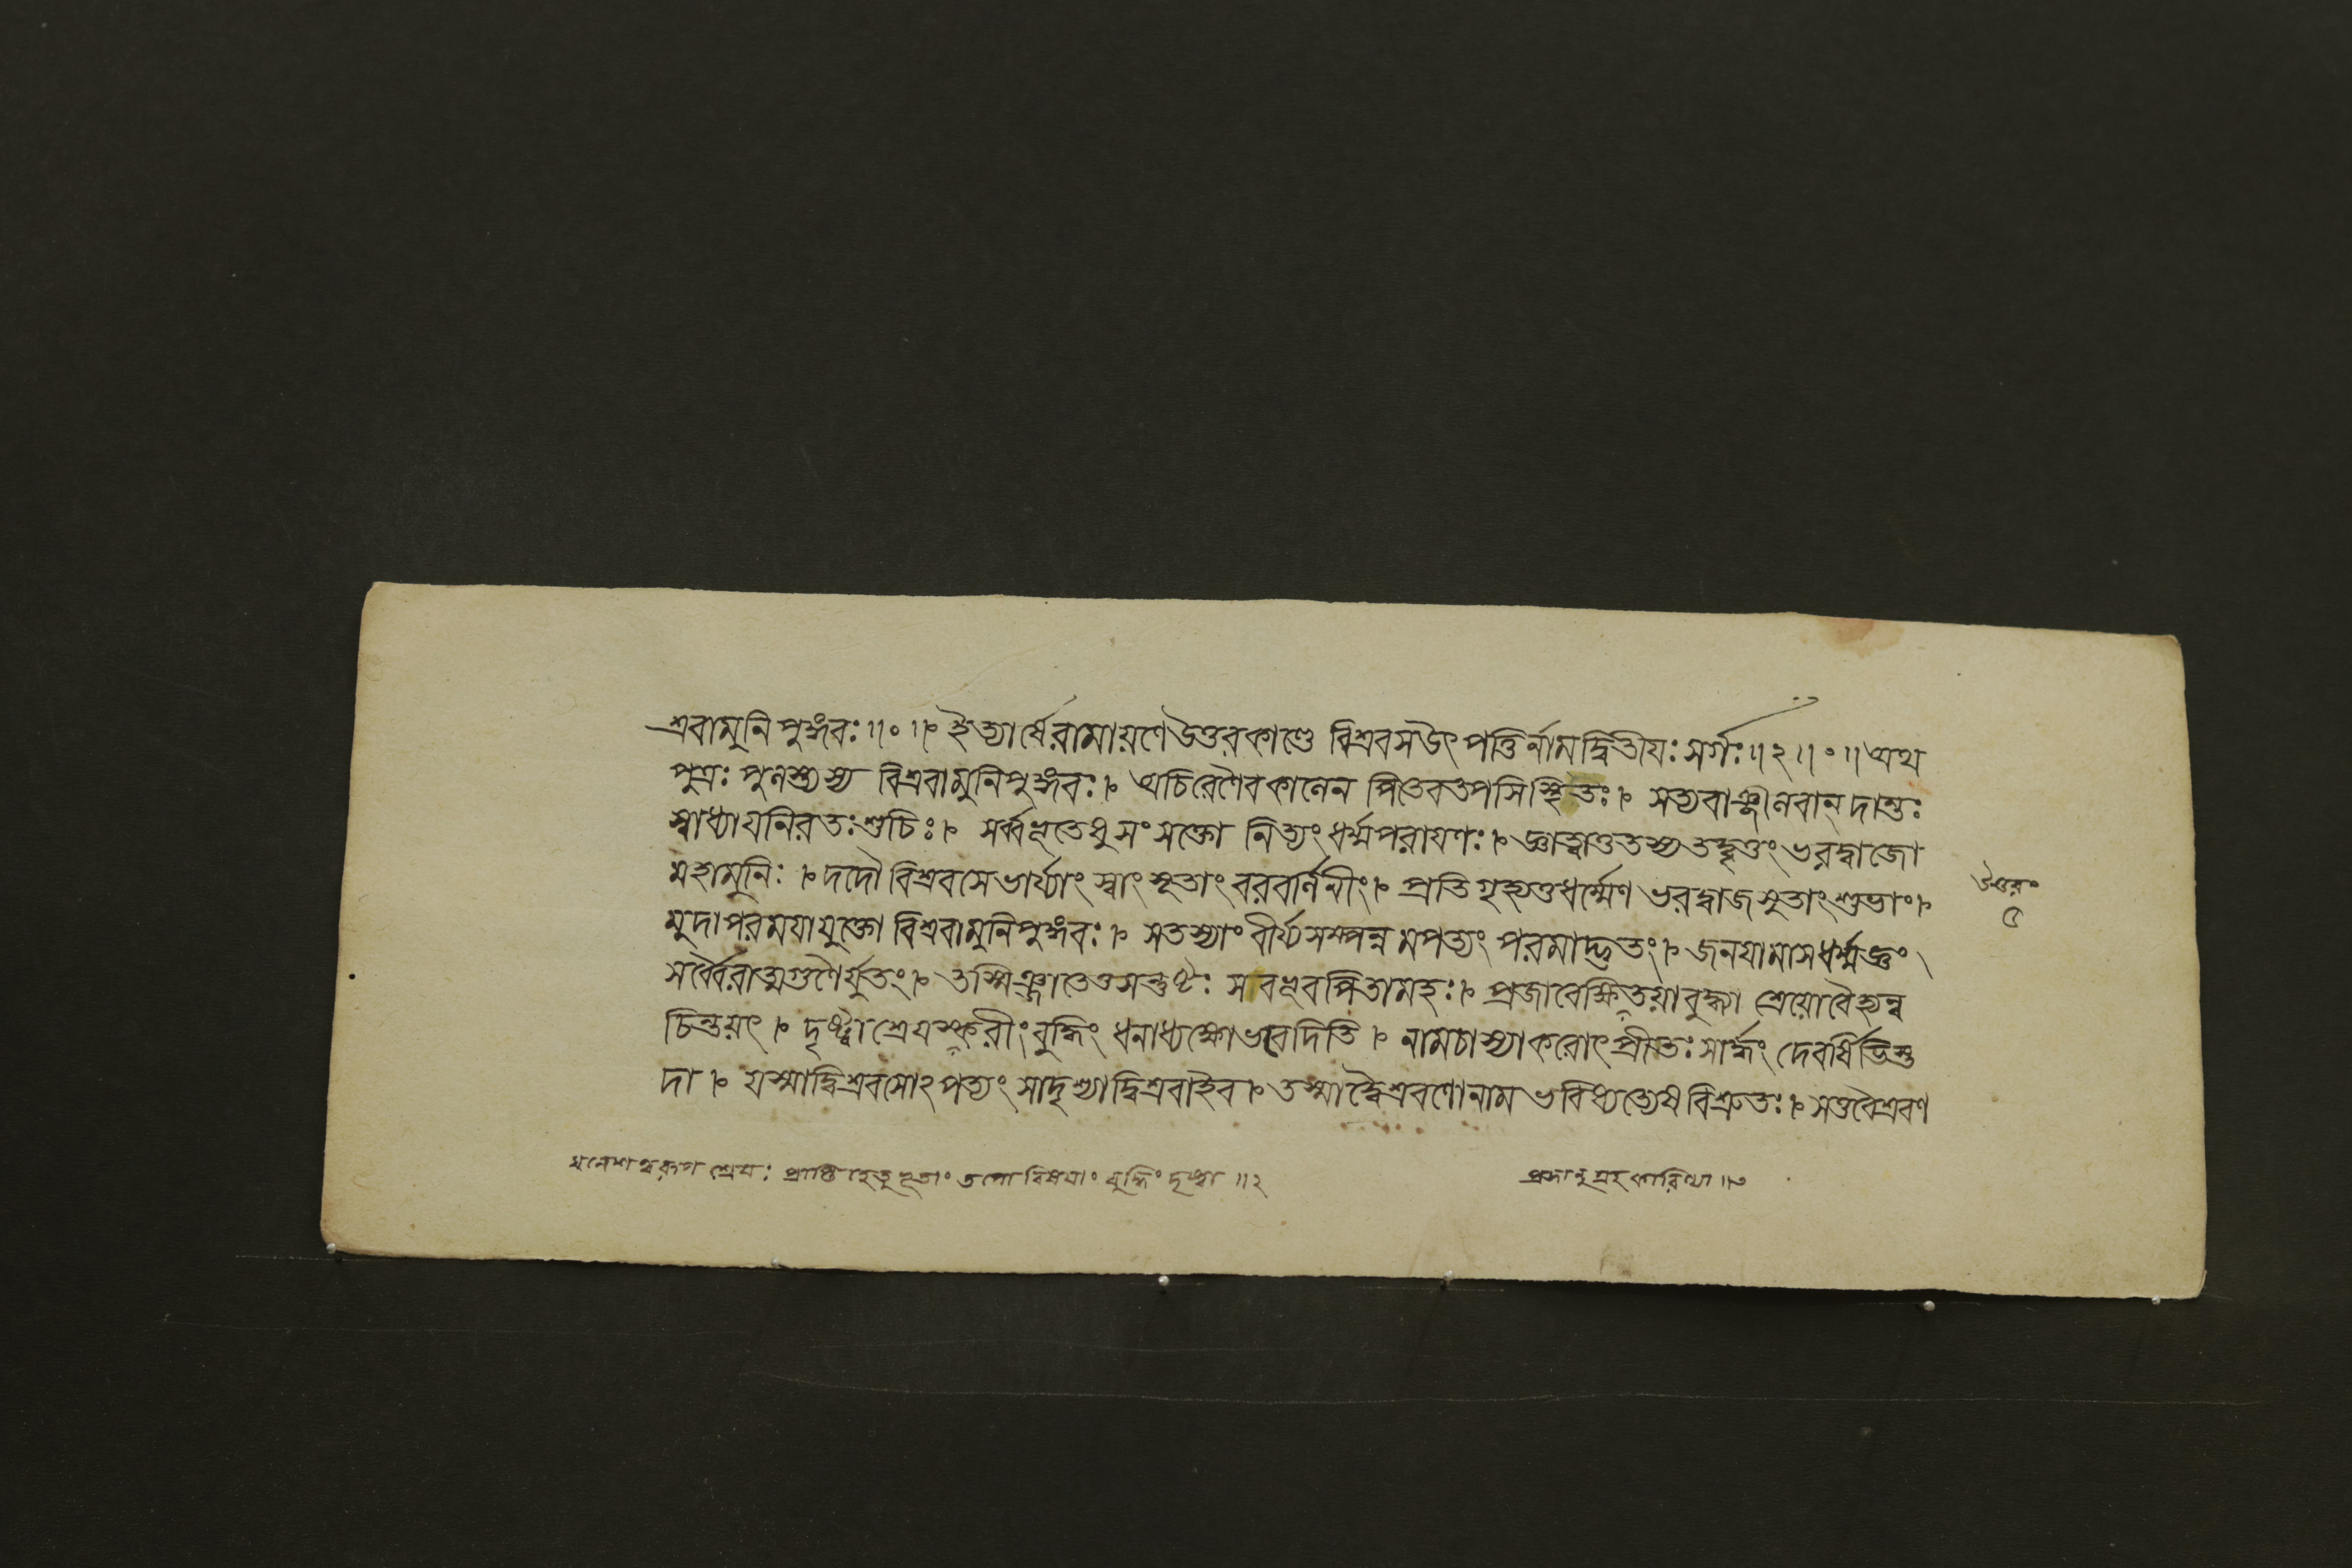 শ্রবামুনিপুঙ্গবঃ॥০॥ ইত্যার্ষেরামায়ণেউত্তরকাণ্ডে বিশ্রবসউৎপত্তির্নামদ্বিতীযঃসর্গঃ॥২॥০॥অথ
পুত্রঃ পুলস্ত্যস্য বিশ্রবামুনিপুঙ্গবঃ। অচিরেণৈবকালেন পিতেবতপসিস্থিতঃ। সত্যবাঞ্ছীলবান্ দান্তঃ
স্বাধ্যাযনিরতঃশুচিঃ। সর্ব্বভূতেষুসংসক্তো নিত্যংধর্ম্মপরাযণঃ। জ্ঞাত্বাতুতস্যতদ্বৃত্তং ভরদ্বাজো
মহামুনিঃ। দদৌবিশ্রবসেভার্য্যাং স্বাংসুতাংবরবর্ণিনীং। প্রতিগৃহ্যতুধর্ম্মেণ ভরদ্বাজসুতাংশুভাং।
মুদাপরমযাযুক্তো বিশ্রবামুনিপুঙ্গবঃ। সতস্যাং বীর্য্যসম্পন্নমপত্যং পরমাদ্ভুতং। জনযামাসধর্ম্মজ্ঞং
সর্ব্বৈরাত্মগুণৈর্যুতং। তস্মিঞ্জাতেতুসন্তুষ্টঃ সবভূবপিতামহঃ। প্রজাবেক্ষিতয়াবুদ্ধ্যা শ্রেয়োবৈহ্যন্ব
চিন্তয়ৎ। দৃষ্ট্বাশ্রেযস্করীংবুদ্ধিং ধনাধ্যক্ষোভবেদিতি। নামচাস্যাকরোৎপ্রীতঃসার্দ্ধং দেবর্ষিভিস্ত
দা। যস্মাদ্বিশ্রবসোঽপত্যং সাদৃশ্যাদ্বিশ্রবাইব। তস্মাদ্বৈশ্রবণোনাম ভবিষ্যত্যেষবিশ্রুতঃ। সতুবৈশ্রবণ
উত্তরং
৫
শ্রেযঃ প্রাপ্তিহেতুভূতাং তপোবিষযাং বুদ্ধিং দৃষ্ট্বা॥২